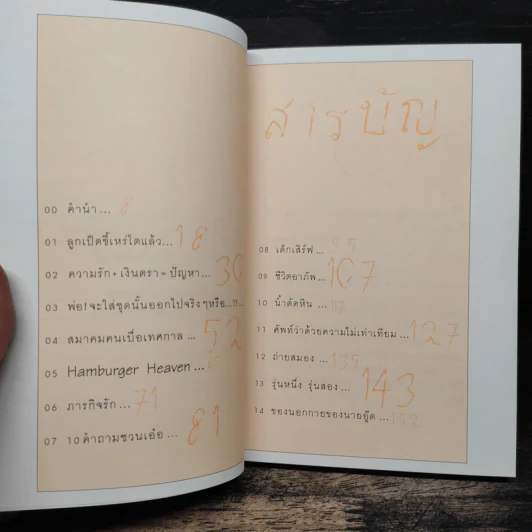 00 คำนำ... 8
01 ลูกเป็ดขี้เหร่โตแล้ว... 18
02 ความรัก+เงินตรา=ปัญหา... 30
03 พ่อ!จะใส่ชุดนั้นออกไปจริงๆหรือ...
04 สมาคมคนเบื่อเทศกาล ... 52
05 Hamburger Heaven ...
06 ภารกิจรัก ... 71
07 10คำถามชวนเอ๋อ ... 81
สารบัญ
08 เด็กเสิร์ฟ... 95
09 ชีวิตอาภัพ... 107
10 นิ้วตัดหิน ...
11 ศัพท์ว่าด้วยความไม่เท่าเทียม... 127
12 ถ่ายสมอง ... 135
13 รุ่นหนึ่ง รุ่นสอง... 143
14 ของนอกกายของนายอู๊ด ... 152